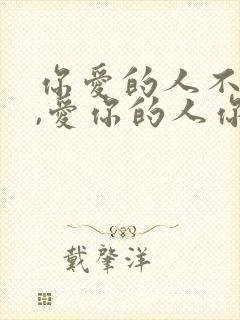 你爱的人不
,爱你的人你
戴肇洋